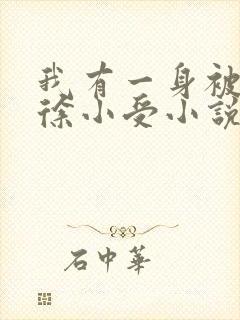 我有一身被
徐小受小說
石中華